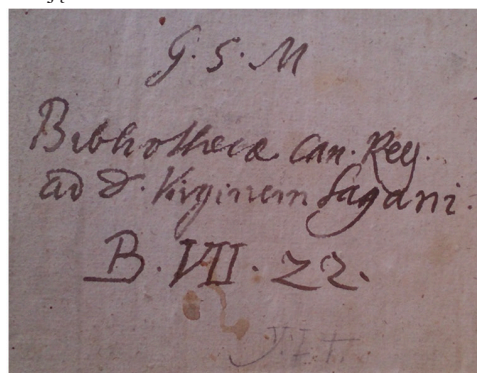 G. S. M
Bibliothecæ Can. Reg.
ad D. Virginem Sagani.
B. VII. 22.